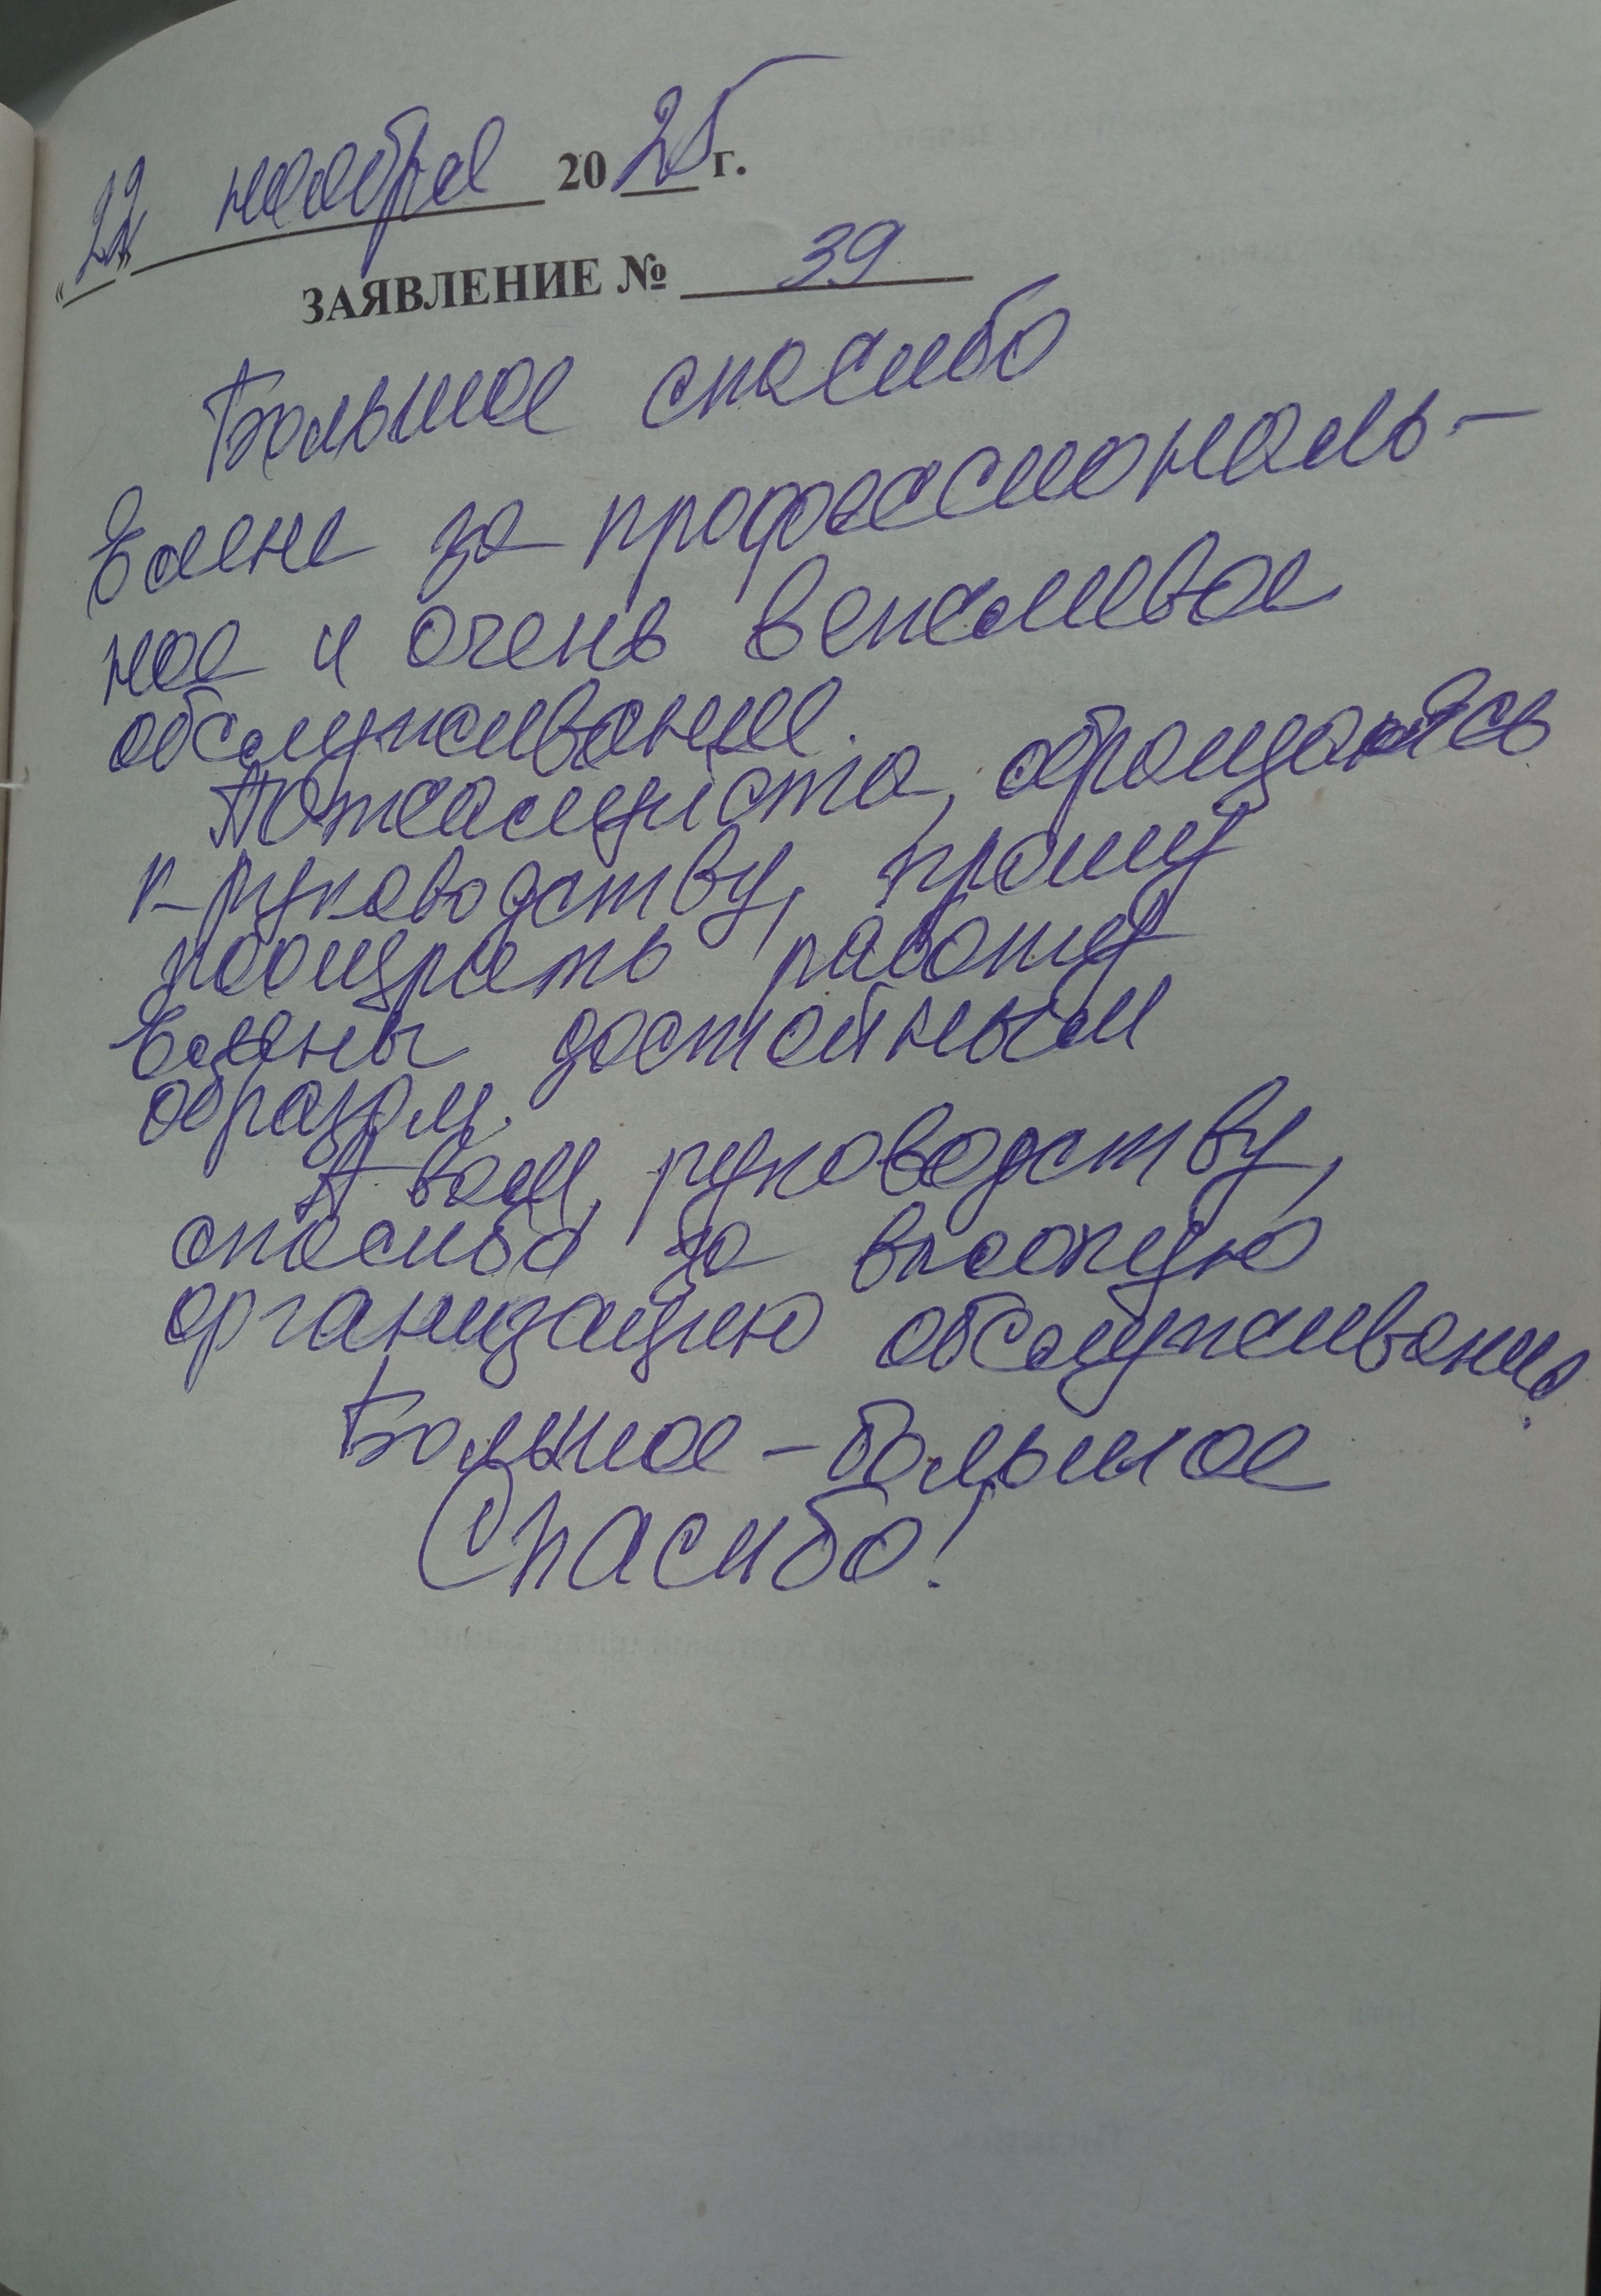 "22" ноября 2025 г.
ЗАЯВЛЕНИЕ № 39
Большое спасибо
Елене за профессиональ-
ное и очень вежливое
обслуживание.
Пожалуйста, обращаясь
к руководству, прошу
поощрить работу
Елены достойным
образом.
А вам, руководству,
спасибо за высокую
организацию обслуживания.
Большое-большое
Спасибо!